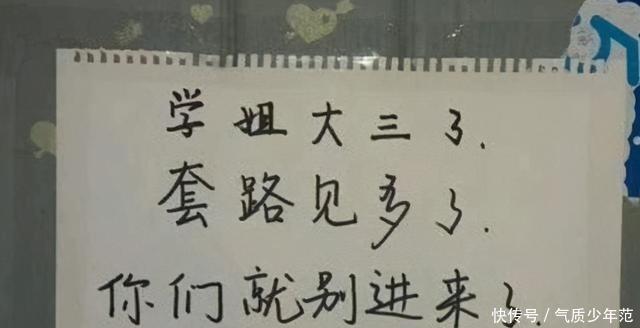 学姐大三了.
套路见多了.
你们就别进来了
快传号/气质少年范